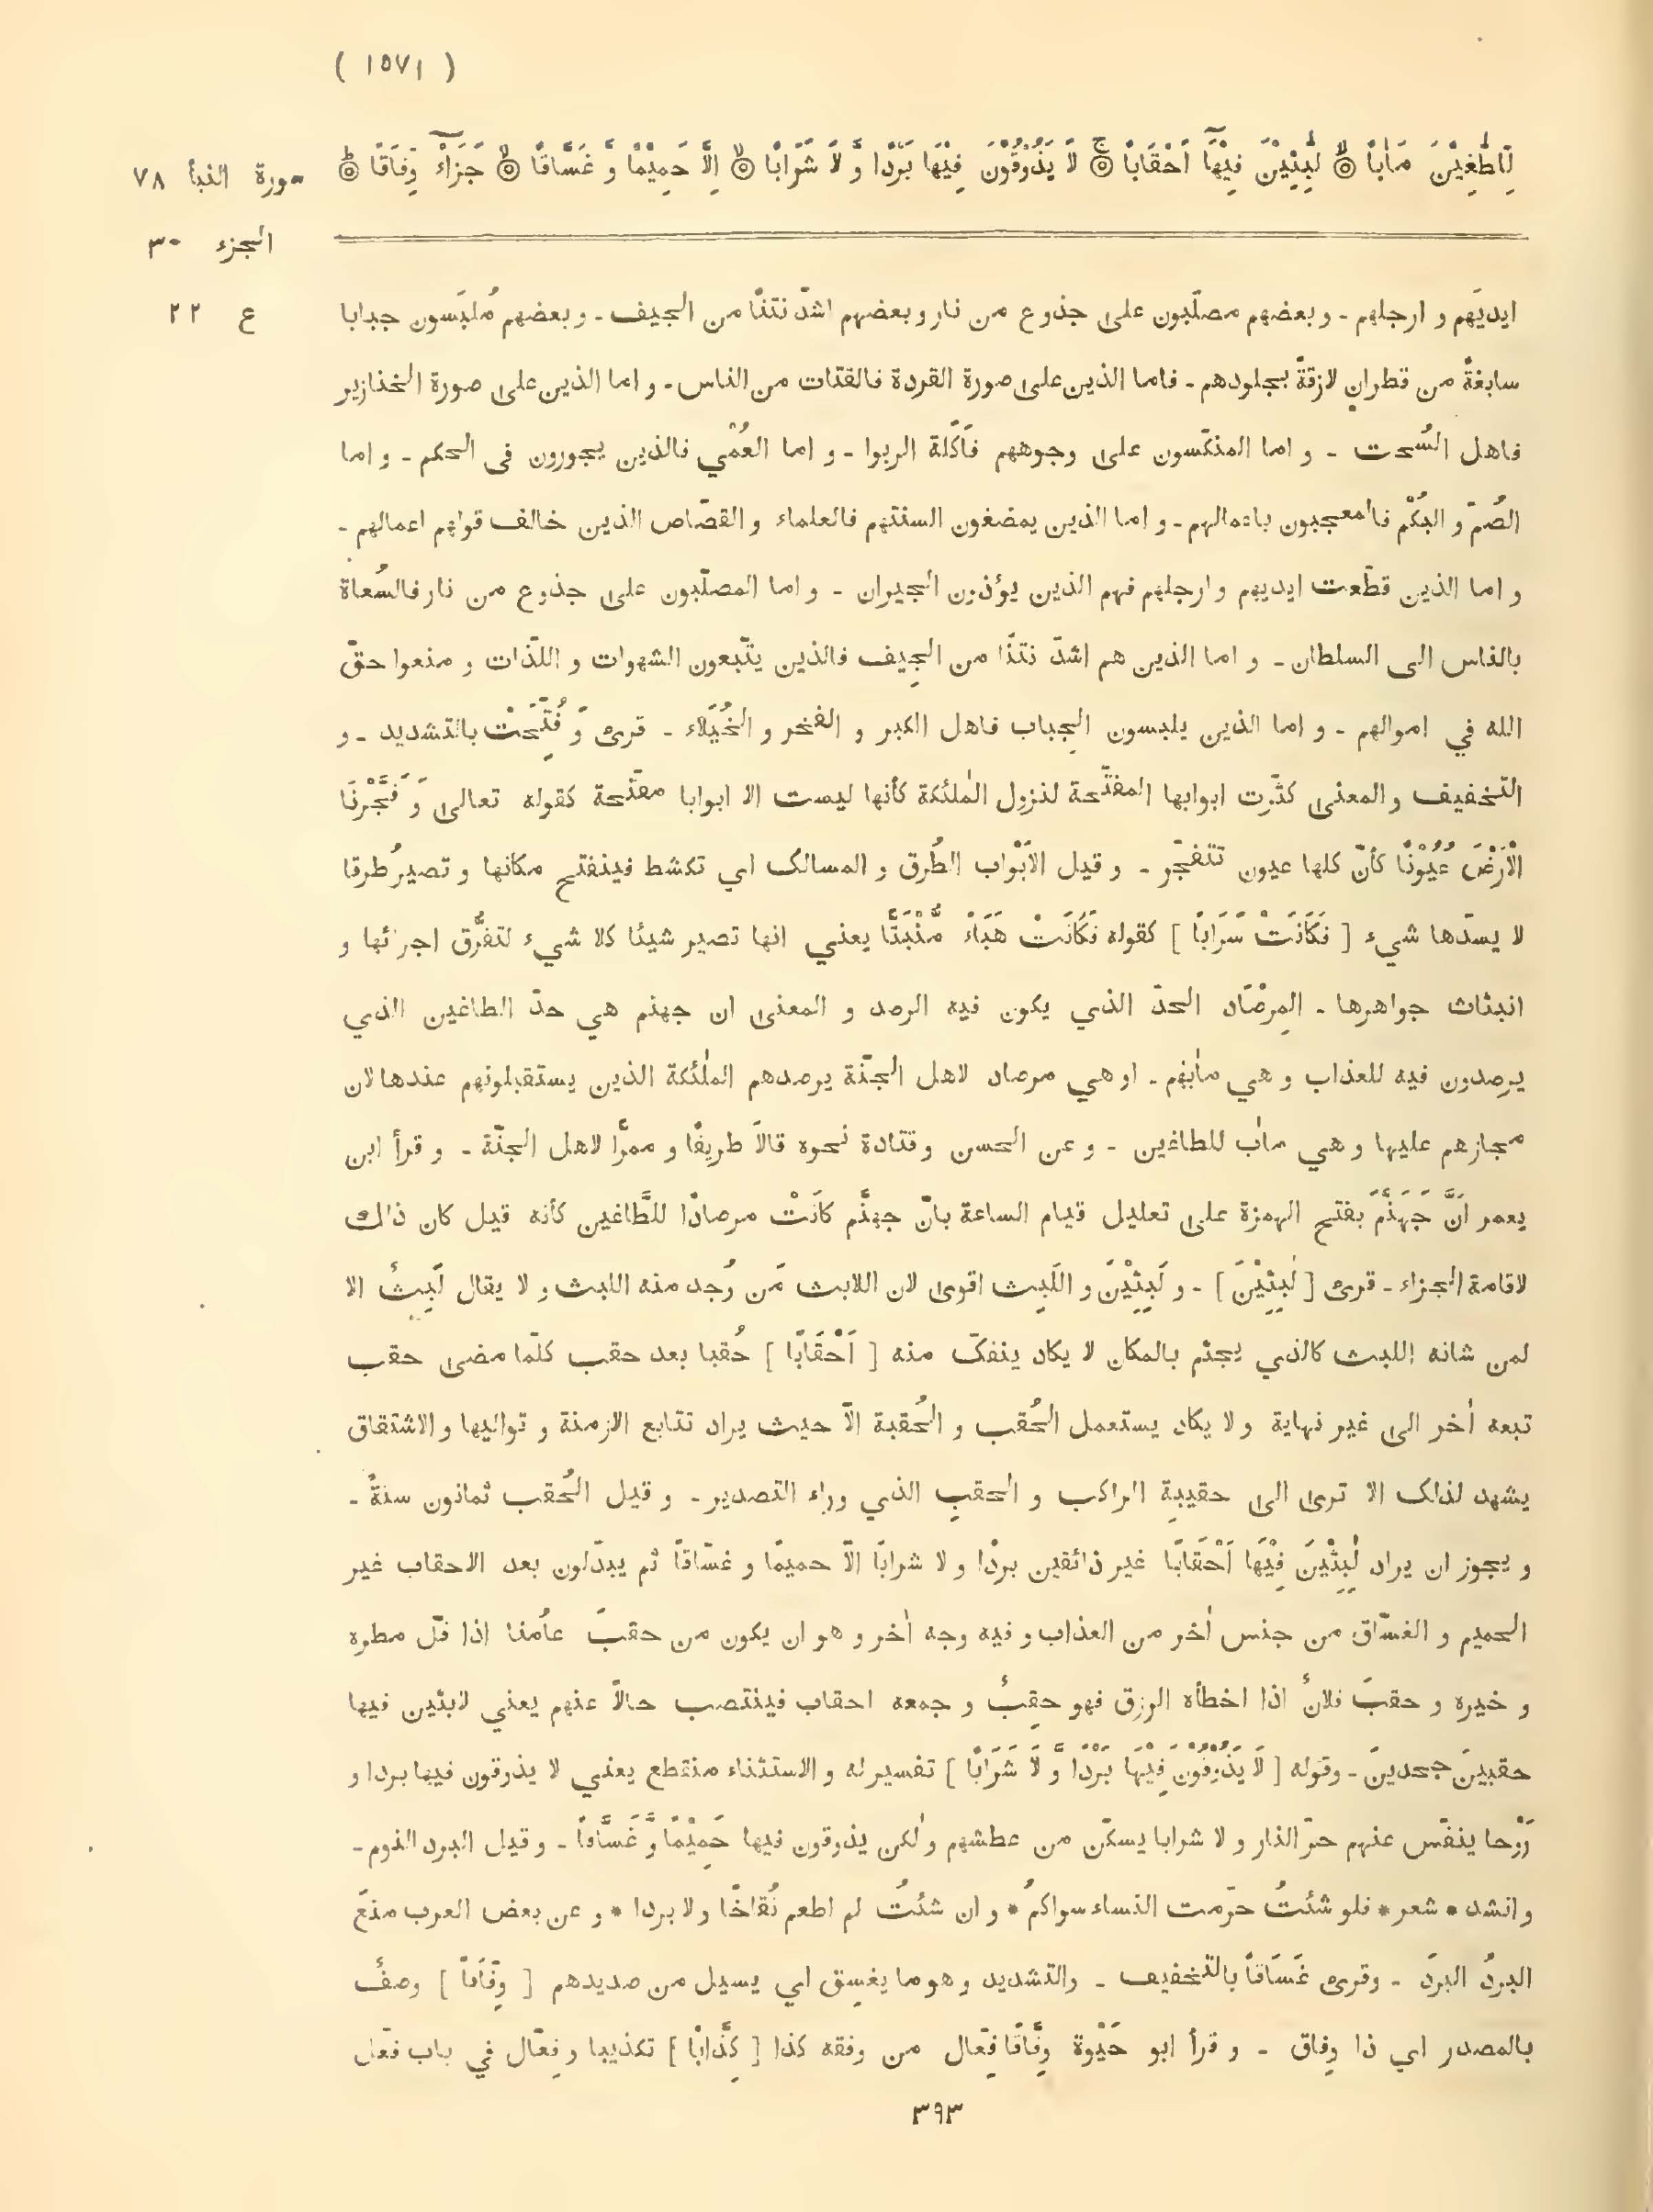 ( ١٥٧١ )
لِّلطّٰغِيْنَ مَاٰبًا ۙ لّٰبِثِيْنَ فِيْهَآ اَحْقَابًا ۚ لَا يَذُوْقُوْنَ فِيْهَا بَرْدًا وَّ لَا شَرَابًا ۙ اِلَّا حَمِيْمًا وَّ غَسَّاقًا ۙ جَزَآءً وِّفَاقًا ؕ
سورة النبأ ٧٨
الجزء ٣٠
ع ٢٢
ايديَهم و ارجلهم - و بعضهم مصلّبون على جذوع من نار و بعضهم اشدّ نتنًا من الجيف - و بعضهم مُلبَسون جبابا
سابغةً من قطرانٍ لازقةً بجلودهم - فاما الذين على صورة القردة فالقتات من الناس - و اما الذين على صورة الخنازير
فاهل السُحت - و اما المنكّسون على وجوههم فاَكَلة الربوا - و اما العُمْي فالذين يجورون فى الحكم - و اما
الصُمّ و البُكْم فالمعجبون باعمالهم - و اما الذين يمضغون السنتهم فالعلماء و القصّاص الذين خالف قولهم اعمالهم -
و اما الذين قطّعت ايديهم و ارجلهم فهم الذين يؤذون الجيران - و اما المصلّبون على جذوع من نار فالسُعاة
بالناس الى السلطان - و اما الذين هم اشدّ نتنًا من الجِيف فالذين يتّبعون الشهوات و اللذّات و منعوا حقّ
الله في اموالهم - و اما الذين يلبسون الجِباب فاهل الكبر و الفخر و الخُيَلاء - قرئ وَ فُتِّحَتْ بالتشديد - و
التخفيف و المعنى كثُرت ابوابها المفتّحة لنزول الملٰئكة كأنها ليست الا ابوابا مفتّحة كقوله تعالى وَ فَجَّرْنَا
الْاَرْضَ عُيُوْنًا كأنّ كلها عيون تتفجّر - و قيل الاَبْواب الطُرق و المسالك اي تكشط فينفتح مكانها و تصير طُرقا
لا يسدّها شيء [ فَكَانَتْ سَرَابًا ] كقوله فَكَانَتْ هَبَاءً مُّنْبَثًّا يعني انها تصير شيئا كلا شيء لتفرُّق اجزائها و
انبثاث جواهرها - المِرصَاد الحدّ الذي يكون فيه الرصد و المعنى ان جهنم هي حدّ الطاغين الذي
يرصدون فيه للعذاب و هي ماٰبهم - او هي مرصاد لاهل الجنّة يرصدهم الملٰئكة الذين يستقبلونهم عندها لان
مجازهم عليها و هي ماٰب للطاغين - و عن الحسن و قتادة نحوه قالا طريقًا و ممرًّا لاهل الجنّة - و قرأ ابن
يعمر اَنَّ جَهَنَّمَ بفتح الهمزة على تعليل قيام الساعة بانّ جهنّم كَانَتْ مرصادًا للطَّاغين كأنه قيل كان ذلك
لاقامة الجزاء - قرئ [ لٰبِثِيْنَ ] - و لَبِثِيْنَ و اللَبِث اقوى لان اللابث مَن وُجد منه اللبث و لا يقال لَبِثٌ الا
لمن شانه اللبث كالذي يجثم بالمكان لا يكاد ينفكّ منه [ اَحْقَابًا ] حُقبا بعد حقب كلّما مضى حقب
تبعه اٰخر الى غير نهاية و لا يكاد يستعمل الحُقب و الحُقبة الّا حيث يراد تتابع الازمنة و تواليها و الاشتقاق
يشهد لذلك الا ترى الى حقيبةِ الراكب و الحقبِ الذي وراء التصدير - و قيل الحُقب ثمانون سنةً -
و يجوز ان يراد لٰبِثِيْنَ فِيْهَا اَحْقَابًا غير ذائقين بردًا و لا شرابًا الّا حميمًا و غسّاقًا ثم يبدّلون بعد الاحقاب غير
الحميم و الغسّاق من جنس اٰخر من العذاب و فيه وجه اٰخر و هو ان يكون من حقبَ عامُنا اذا قلّ مطره
و خيره و حقبَ فلانٌ اذا اخطأه الرزق فهو حقِبٌ و جمعه احقاب فينتصب حالًا عنهم يعني لابثين فيها
حقبينَ جحدينَ - و قوله [ لَا يَذُوْقُوْنَ فِيْهَا بَرْدًا وَّ لَا شَرَابًا ] تفسير له و الاستثناء منقطع يعني لا يذوقون فيها بردا و
رَوْحا ينفّس عنهم حرّ النار و لا شرابا يسكّن من عطشهم و لٰكن يذوقون فيها حَمِيْمًا وَّ غَسَّاقًا - و قيل البرد النوم -
و انشد * شعر * فلو شئتُ حرّمت النساء سواكمُ * و ان شئتُ لم اطعم نُقاخًا و لا بردا * و عن بعض العرب منعَ
البردُ البردَ - و قرئ غَسَاقًا بالتخفيف - و التشديد و هو ما يغسِق اي يسيل من صديدهم [ وِفَاقًا ] وصفٌ
بالمصدر اي ذا وِفاق - و قرأ ابو حَيْوة وِفَّاقًا فِعّال من وفقه كذا [ كِذَّابًا ] تكذيبا و فِعّال في باب فعّل
٣٩٣